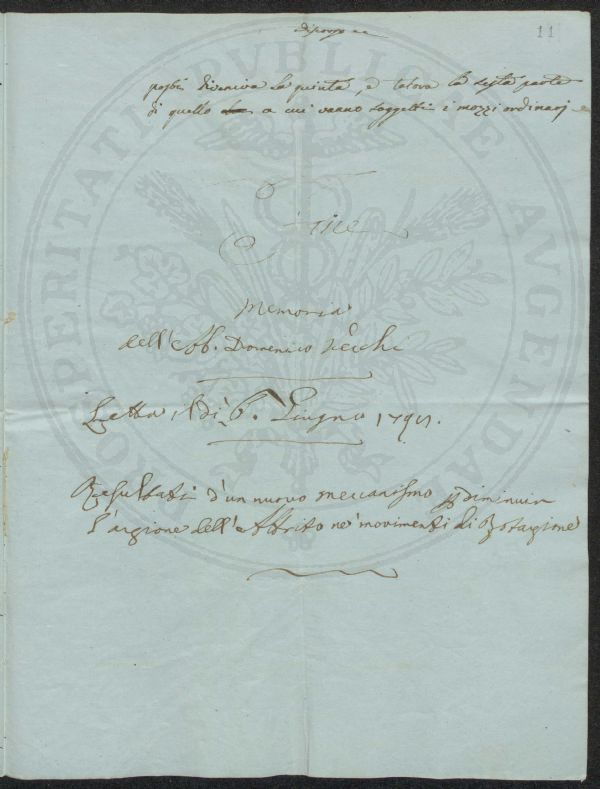 11
diveniva la quinta, e talora la sesta parte
di quello a cui vanno soggetti i mozzi ordinarj
Fine
Memoria
dell'Ab. Domenico Vecchi
Letta il dì 6. Giugno
Resultati d'un nuovo meccanismo p diminuir
l'azione dell'Attrito ne' movimenti di Rotazione
PROSPERITATI PUBLICAE AVGENDAE